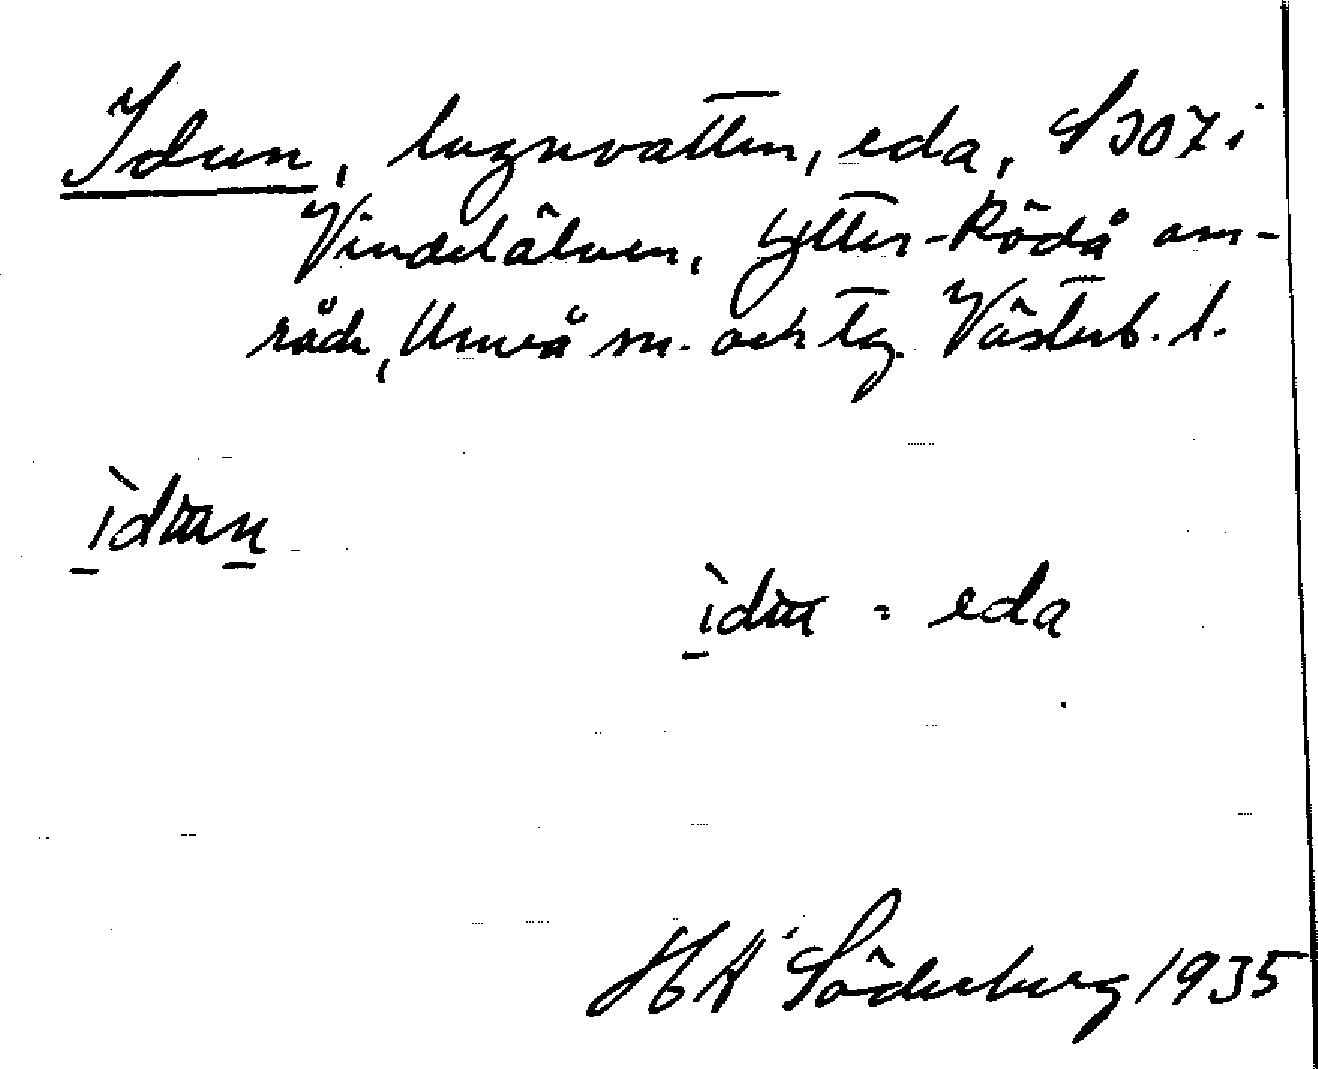 Idun, lugnvatten, eda, S 307 i
Vindelälven, Ytter-Rödå om-
råde, Umeå sn. och tg. Västerb. l.
ìdɯn
ìdɯ = eda
HA Söderberg 1935